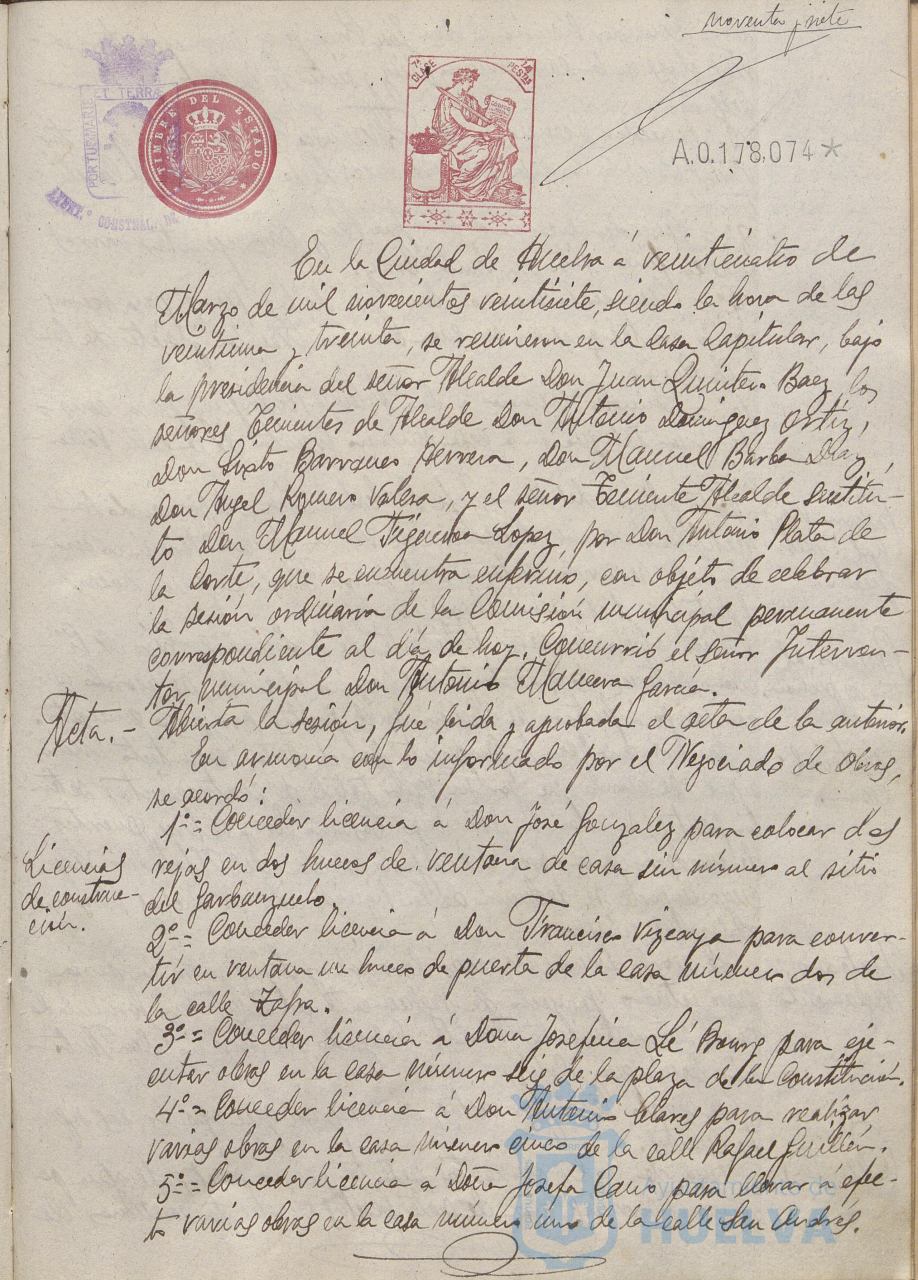 noventa y siete
PORTUS MARIS ET TERRÆ
AYUNT.º CONSTNAL. DE
TIMBRE DEL ESTADO
7ª CLASE
PESETAS
A.0.178,074*
En la Ciudad de Huelva á veinticuatro de
Marzo de mil novecientos veintisiete, siendo la hora de las
veintiuna y treinta, se reunieron en la Casa Capitular, bajo
la presidencia del señor Alcalde Don Juan Quintero Baez, los
señores Tenientes de Alcalde Don Antonio Dominguez Ortiz,
Don Sixto Barranco Herrera, Don Manuel Barba Diaz,
Don Angel Romero Valera, y el señor Teniente Alcalde sustitu-
to Don Manuel Figueroa Lopez, por Don Antonio Plata de
la Corte, que se encuentra enfermo, con objeto de celebrar
la sesión ordinaria de la Comisión municipal permanente
correspondiente al día de hoy. Concurrió el señor Interven-
tor municipal Don Antonio García.
Acta.- Abierta la sesión, fué leida y aprobada el acta de la anterior.
En armonía con lo informado por el Negociado de Obras,
se acordó:
1º= Conceder licencia á Don José Gonzalez para colocar dos
Licencias
de construc-
ción.
rejas en dos huecos de ventana de casa sin número al sitio
del Garbanzuelo.
2º= Conceder licencia á Don Francisco Vizcaya para conver-
tir en ventana un hueco de puerta de la casa número dos de
la calle Zafra.
3º= Conceder licencia á Doña Josefina Lé Bourg para eje-
cutar obras en la casa número seis de la plaza de la Constitución.
4º= Conceder licencia á Don Antonio Clares para realizar
varias obras en la casa número cinco de la calle Rafael Guillén.
5º= Conceder licencia á Doña Josefa Cano para llevar á efec-
to varias obras en la casa número uno de la calle San Andrés.
Ayuntamiento de
HUELVA